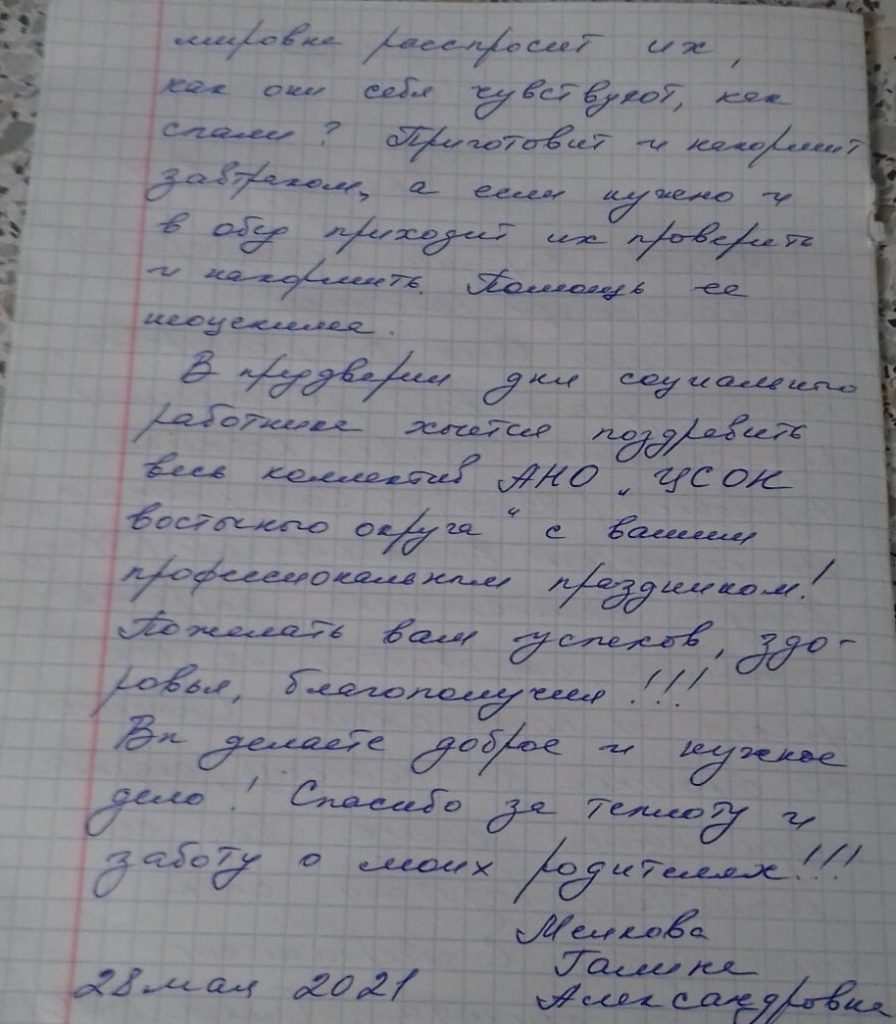 мировна расспросит их,
как они себя чувствуют, как
спали? Приготовит и накормит
завтраком, а если нужно и
в обед приходит их проверить
и накормить. Помощь ее
неоценима.
В преддверии дня социального
работника хочется поздравить
весь коллектив АНО „ЦСОН
восточного округа“ с вашим
профессиональным праздником!
Пожелать вам успехов, здо-
ровья, благополучия!!!
Вы делаете доброе и нужное
дело! Спасибо за теплоту и
заботу о моих родителях!!!
Мелкова
Галина
28 мая 2021 Александровна